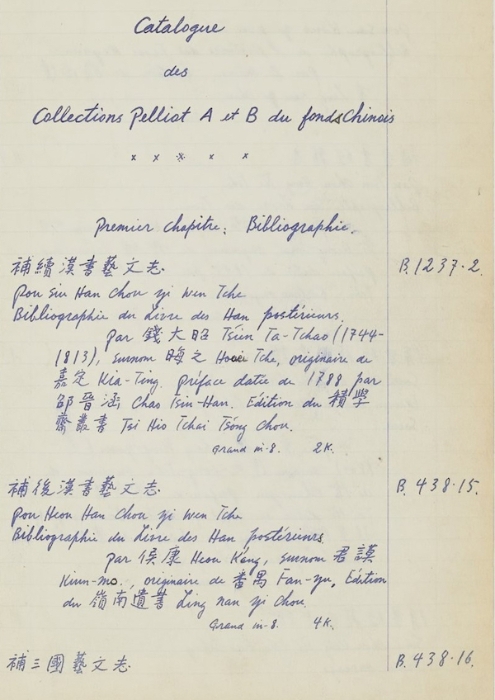 Catalogue
des
Collections Pelliot A et B du fonds Chinois
x x x x x
Premier chapitre: Bibliographie.
補續漢書藝文志. B.1237-2.
Pou Siu Han Chou yi wen Tche
Bibliographie du Livre des Han postérieurs.
par 錢大昭 Tsien Ta-Tchao (1744-
1813), surnom 晦之 Hoei Tche, originaire de
嘉定 Kia-Ting. Préface datée de 1788 par
邵晉涵 Chao Tsin-Han. Edition du 積學
齋叢書 Tsi Hio Tchai Tsong Chou.
Grand in-8. 2K.
補後漢書藝文志. B.438-15.
Pou Heou Han Chou yi wen Tche
Bibliographie du Livre des Han postérieurs
par 侯康 Heou K'ang, surnom 君謨
Kiun-mo, originaire de 番禺 Fan-yu, Edition
du 嶺南遺書 Ling nan yi Chou.
Grand in-8. 4K.
補三國藝文志. B.438-16.